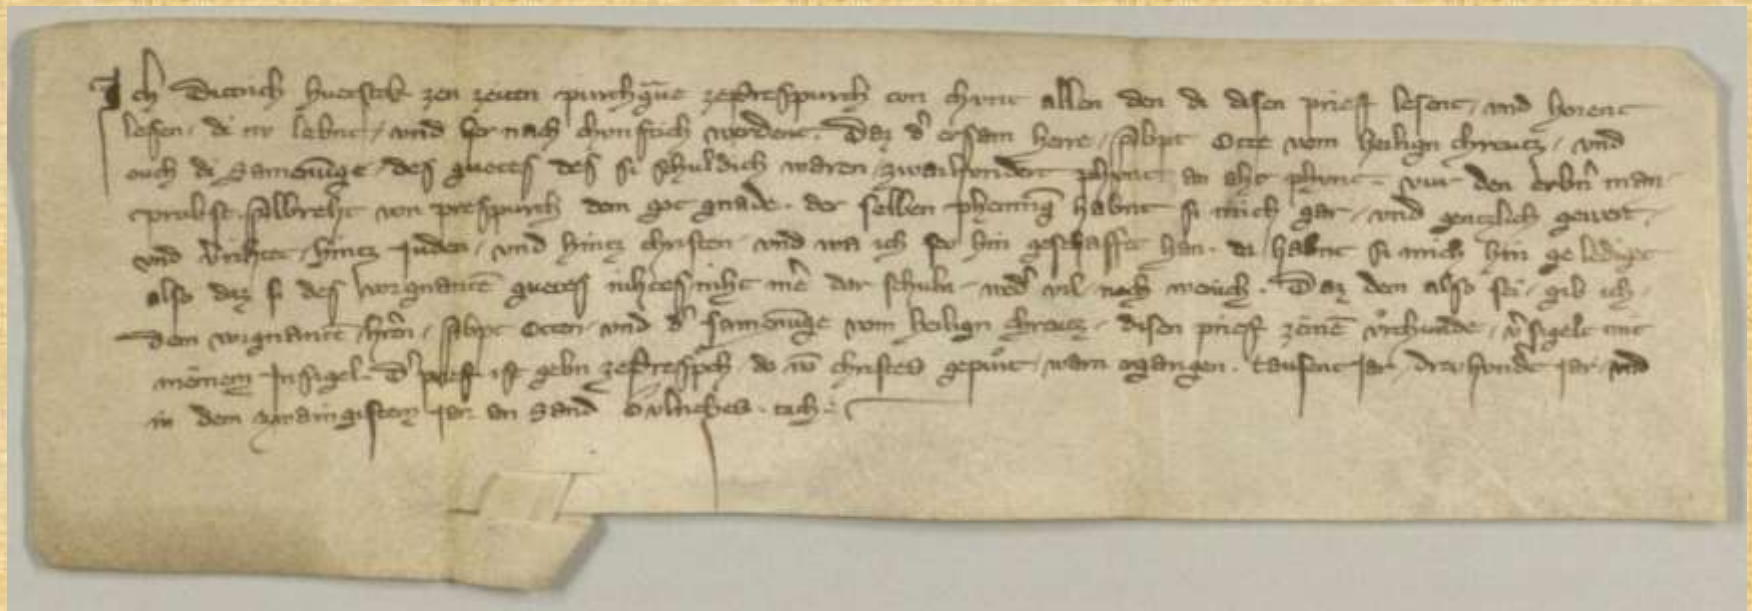 Ich Dittrich hverstek zen zeiten purchg̃ue zePresspurch tvn chvnt allen den di disen prieff lesent, vnd horent
lesen, di nv lebnt, vnd her nach chvnftich werdent. Daz d' ersam herre, Abpt Otte vom heilign chreutz, vnd
ouch di Samenu̅ge, des guetes des si schuldich waren, zwaihvndert phvnt an aht phvnt, vur den erbñ man
probst Albreht von prespurch dem got gnade. der selben phenni̅g habnt si mich gar, vnd gentzlich gewert,
vnd v'rihtet, hintz Juden, vnd hintz christen, vnd wa ich ser hin geschaffet han. da habnt si mich hin geledigt
also daz si des vorgnante̅ guetes nihtes niht me̅ dar schuln
Daz dem also sei, gib ich,
dem vorgnante̅ h'ren, Abpt Otten, vnd d' samenu̅ge vom heilign chreutz, disen prief ze einē vrchunde, v'sigelt mit
meinem Insigel. D' prief ist gebn zePresspch, do vo̅ christes gepurt, warn ergangen. tausent jar, drevhvndt jar, vnd
in dem zwaingistem jar an Sand Vlriches. tach.